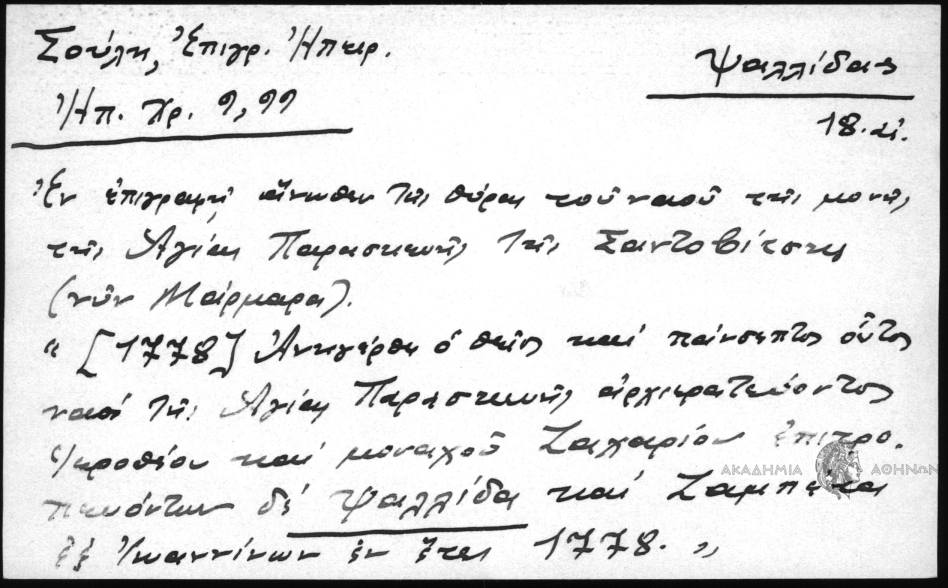 Σούλη, Ἐπιγρ. Ἠπειρ.
Ψαλλίδας
Ἠπ. Χρ. 9, 99
18. αἰ.
Ἐν ἐπιγραφῇ ἄνωθεν τῆς θύρας τοῦ ναοῦ τῆς μονῆς
τῆς Ἁγίας Παρασκευῆς τῆς Σαντοβίτσης
(νῦν Μάρμαρα).
" [1778] Ἀνηγέρθη ὁ θεῖος καί πάνσεπτος οὗτος
ναός τῆς Ἁγίας Παρασκευῆς ἀρχιερατεύοντος
Ἱεροθέου καί μοναχοῦ Ζαχαρίου ἐπιτρο-
πευόντων δέ Ψαλλίδα καί
ἐξ Ἰωαννίνων ἐν ἔτει 1778. "
ΑΚΑΔΗΜΙΑ ΑΘΗΝΩΝ